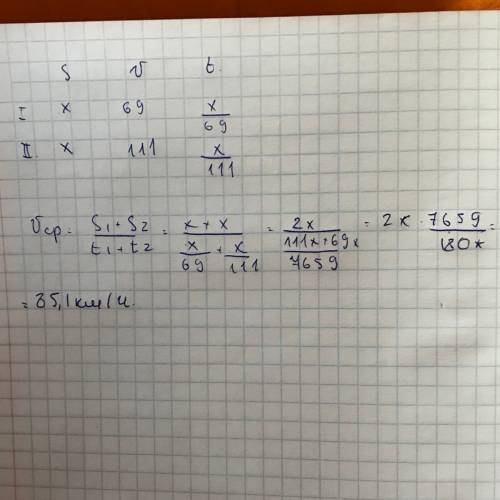 S v t
I x 69 x/69
II x 111 x/111
Vср = (S1 + S2)/(t1 + t2) = (x + x)/(x/69 + x/111) = 2x/((111x + 69x)/7659) = 2x · 7659/180x =
= 85,1 км/ч.